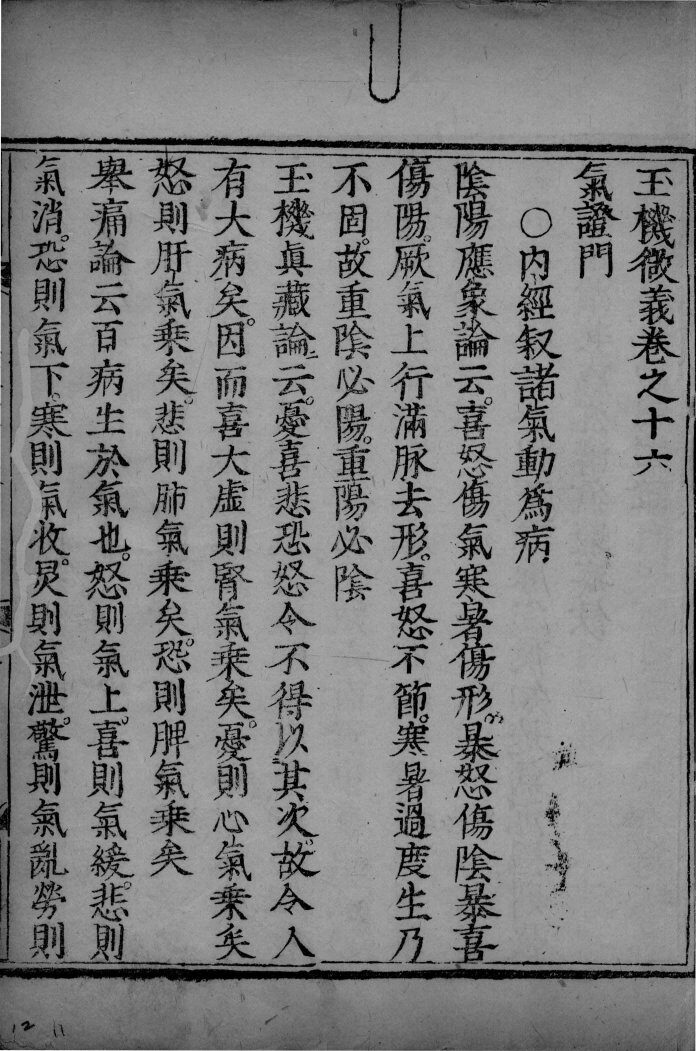 玉機微義卷之十六
氣證門
〇內經叙諸氣動爲病
陰陽應象論云。喜怒傷氣寒暑傷形。暴怒傷陰暴喜
傷陽。厥氣上行滿脉去形。喜怒不節。寒暑過度生乃
不固。故重陰必陽。重陽必陰
玉機眞藏論云。憂喜悲恐怒令不得以其次。故令人
有大病矣。因而喜大虛則腎氣乘矣。憂則心氣乘矣
怒則肝氣乘矣。悲則肺氣乘矣。恐則脾氣乘矣
舉痛論云百病生於氣也。怒則氣上。喜則氣緩。悲則
氣消。恐則氣下。寒則氣收。炅則氣泄。驚則氣亂勞則
12 11